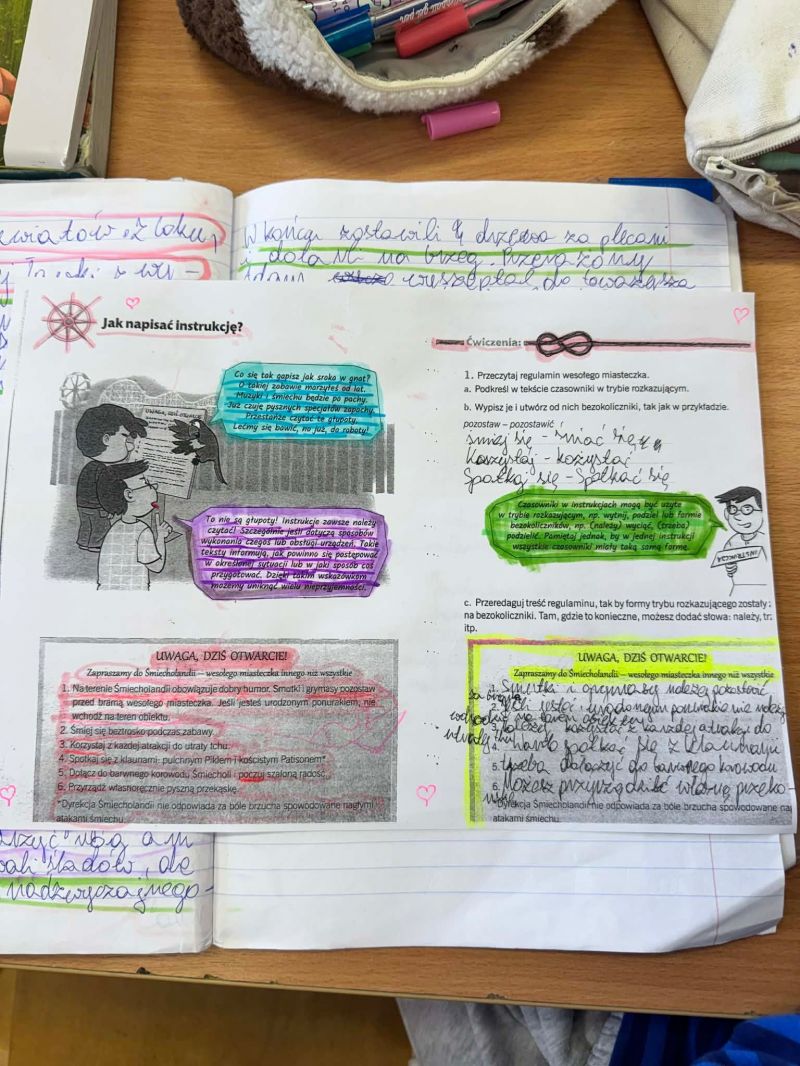 W końcu zostawili drzewa za plecami
i dotarli na brzeg. Przerażony
wyszeptał do towarzysza
Jak napisać instrukcję?
UWAGA, DZIŚ OTWARCIE!
Co się tak gapisz jak sroka w gnat?
O takiej zabawie marzyłeś od lat.
Muzyki i śmiechu będzie po pachy.
Już czuję pysznych specjałów zapachy.
Przestańże czytać te głupoty.
Lećmy się bawić, no już, do roboty!
To nie są głupoty! Instrukcje zawsze należy
czytać! Szczególnie jeśli dotyczą sposobów
wykonania czegoś lub obsługi urządzeń. Takie
teksty informują, jak powinno się postępować
w określonej sytuacji lub w jaki sposób coś
przygotować. Dzięki takim wskazówkom
możemy uniknąć wielu nieprzyjemności.
UWAGA, DZIŚ OTWARCIE!
Zapraszamy do Śmiecholandii – wesołego miasteczka innego niż wszystkie
1. Na terenie Śmiecholandii obowiązuje dobry humor. Smutki i grymasy pozostaw
przed bramą wesołego miasteczka. Jeśli jesteś urodzonym ponurakiem, nie
wchodź na teren obiektu.
2. Śmiej się beztrosko podczas zabawy.
3. Korzystaj z każdej atrakcji do utraty tchu.
4. Spotkaj się z klaunami: pulchnym Piklem i kościstym Patisonem*
5. Dołącz do barwnego korowodu Śmiecholi i poczuj szaloną radość.
6. Przyrządź własnoręcznie pyszną przekąskę.
*Dyrekcja Śmiecholandii nie odpowiada za bóle brzucha spowodowane nagłymi
atakami śmiechu.
Ćwiczenia:
1. Przeczytaj regulamin wesołego miasteczka.
a. Podkreśl w tekście czasowniki w trybie rozkazującym.
b. Wypisz je i utwórz od nich bezokoliczniki, tak jak w przykładzie.
pozostaw – pozostawić
śmiej się – śmiać się
Korzystaj – kożystać
Spotkaj się – Spotkać się
Czasowniki w instrukcjach mogą być użyte
w trybie rozkazującym, np. wytnij, podziel lub formie
bezokoliczników, np. (należy) wyciąć, (trzeba)
podzielić. Pamiętaj jednak, by w jednej instrukcji
wszystkie czasowniki miały taką samą formę.
INSTRUKCJA
c. Przeredaguj treść regulaminu, tak by formy trybu rozkazującego zostały
na bezokoliczniki. Tam, gdzie to konieczne, możesz dodać słowa: należy,
itp.
UWAGA, DZIŚ OTWARCIE!
Zapraszamy do Śmiecholandii – wesołego miasteczka innego niż wszystkie
1. Smutki i grymasy należy pozostać
za bramą
2. Jeśli jesteś urodzonym ponurakie nie należy
wchodzić na teren obiektu
3. należy kożystać z każdej atrakcji do
utraty tchu
4. spotkać się z klaunami
5. Trzeba dołączyć do barwnego korowodu
6. Możesz przyrządzić własną przeko-
*Dyrekcja Śmiecholandii nie odpowiada za bóle brzucha spowodowane nag
atakami śmiechu.
nadzwyczajnego